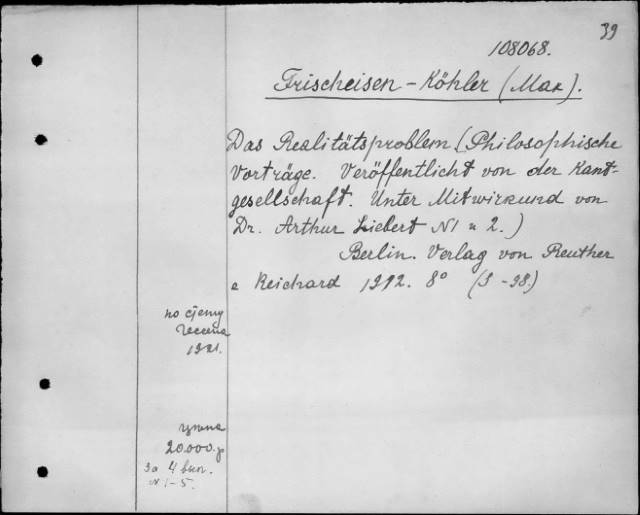 39
108068.
Frischeisen-Köhler (Max).
Das Realitätsproblem (Philosophische
Vorträge. Veröffentlicht von der Kant-
gesellschaft. Unter Mitwirkund von
Dr. Arthur Liebert N1 u 2.)
Berlin. Verlag von Reuther
e Reichard 1912. 8° (3-98.)
1921.
20.000 р
за 4 вып.
N 1-5.